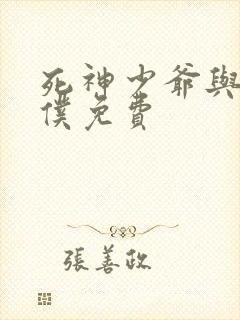 死神少爺與
僕免費
張善政